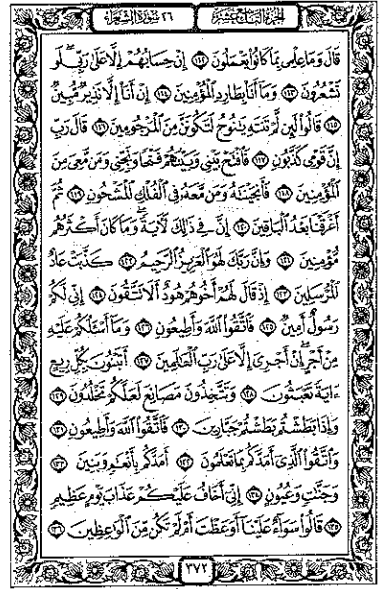 الجزء التاسع عشر ٢٦ سورة الشعراء
قَالَ وَمَا عِلْمِى بِمَا كَانُوا۟ يَعْمَلُونَ ١١٢ إِنْ حِسَابُهُمْ إِلَّا عَلَىٰ رَبِّى لَوْ
تَشْعُرُونَ ١١٣ وَمَآ أَنَا۠ بِطَارِدِ ٱلْمُؤْمِنِينَ ١١٤ إِنْ أَنَا۠ إِلَّا نَذِيرٌ مُّبِينٌ
١١٥ قَالُوا۟ لَئِن لَّمْ تَنتَهِ يَٰنُوحُ لَتَكُونَنَّ مِنَ ٱلْمَرْجُومِينَ ١١٦ قَالَ رَبِّ
إِنَّ قَوْمِى كَذَّبُونِ ١١٧ فَٱفْتَحْ بَيْنِى وَبَيْنَهُمْ فَتْحًا وَنَجِّنِى وَمَن مَّعِىَ مِنَ
ٱلْمُؤْمِنِينَ ١١٨ فَأَنجَيْنَٰهُ وَمَن مَّعَهُۥ فِى ٱلْفُلْكِ ٱلْمَشْحُونِ ١١٩ ثُمَّ
أَغْرَقْنَا بَعْدُ ٱلْبَاقِينَ ١٢٠ إِنَّ فِى ذَٰلِكَ لَءَايَةً وَمَا كَانَ أَكْثَرُهُم
مُّؤْمِنِينَ ١٢١ وَإِنَّ رَبَّكَ لَهُوَ ٱلْعَزِيزُ ٱلرَّحِيمُ ١٢٢ كَذَّبَتْ عَادٌ
ٱلْمُرْسَلِينَ ١٢٣ إِذْ قَالَ لَهُمْ أَخُوهُمْ هُودٌ أَلَا تَتَّقُونَ ١٢٤ إِنِّى لَكُمْ
رَسُولٌ أَمِينٌ ١٢٥ فَٱتَّقُوا۟ ٱللَّهَ وَأَطِيعُونِ ١٢٦ وَمَآ أَسْـَٔلُكُمْ عَلَيْهِ
مِنْ أَجْرٍ إِنْ أَجْرِىَ إِلَّا عَلَىٰ رَبِّ ٱلْعَٰلَمِينَ ١٢٧ أَتَبْنُونَ بِكُلِّ رِيعٍ
ءَايَةً تَعْبَثُونَ ١٢٨ وَتَتَّخِذُونَ مَصَانِعَ لَعَلَّكُمْ تَخْلُدُونَ ١٢٩
وَإِذَا بَطَشْتُم بَطَشْتُمْ جَبَّارِينَ ١٣٠ فَٱتَّقُوا۟ ٱللَّهَ وَأَطِيعُونِ ١٣١
وَٱتَّقُوا۟ ٱلَّذِىٓ أَمَدَّكُم بِمَا تَعْلَمُونَ ١٣٢ أَمَدَّكُم بِأَنْعَٰمٍ وَبَنِينَ ١٣٣
وَجَنَّٰتٍ وَعُيُونٍ ١٣٤ إِنِّىٓ أَخَافُ عَلَيْكُمْ عَذَابَ يَوْمٍ عَظِيمٍ
١٣٥ قَالُوا۟ سَوَآءٌ عَلَيْنَآ أَوَعَظْتَ أَمْ لَمْ تَكُن مِّنَ ٱلْوَٰعِظِينَ ١٣٦
٣٧٢